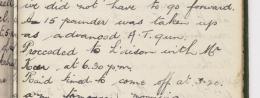 we did not have to go forward.
A 15 pounder was taken up
as advanced A.T. gun.
Proceeded to Liaison with Mr
at 6.30 pm.
Raid timed to come off at 3.20.